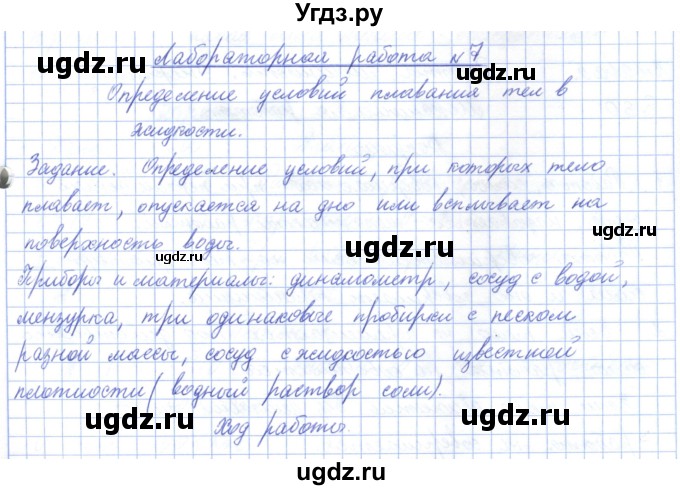 Угдз.ру
Лабораторная работа №7
Определение условий плавания тел в
жидкости.
Задание. Определение условий, при которых тело
плавает, опускается на дно или всплывает на
поверхность воды.
Приборы и материалы: динамометр, сосуд с водой,
мензурка, три одинаковые пробирки с песком
разной массы, сосуд с жидкостью известной
плотности (водный раствор соли).
Ход работы.
ugdz.ru
ugdz.ru
ugdz.ru
ugdz.ru
ugdz.ru
ugdz.ru
ugdz.ru
ugdz.ru
ugdz.ru
ugdz.ru
ugdz.ru